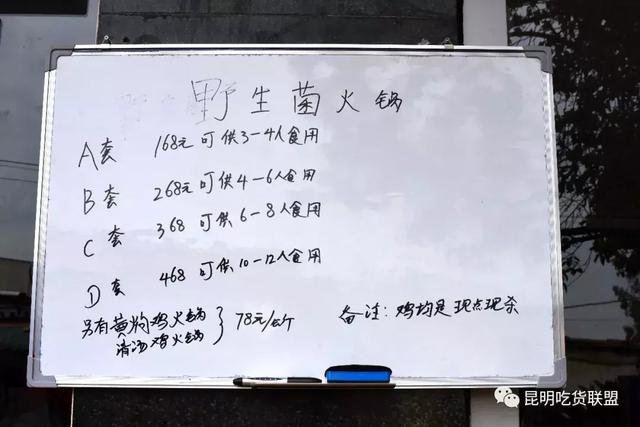 野生菌火锅
A套 168元 可供3-4人食用
B套 268元 可供4-6人食用
C套 368 可供6-8人食用
D套 468 可供10-12人食用
另有黄焖鸡火锅
清汤鸡火锅 } 78元/公斤
备注: 鸡均是现点现杀
昆明吃货联盟